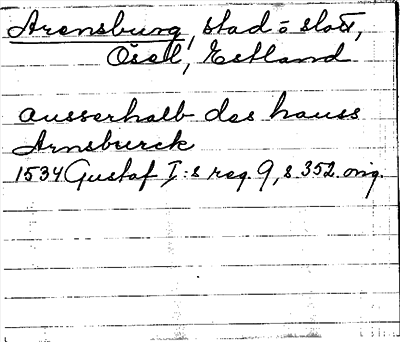 Arensburg, stad o slott,
Ösel, Estland
ausserhalb des hauss
Arnsburck
1534 Gustaf I:s reg. 9, s 352. orig.